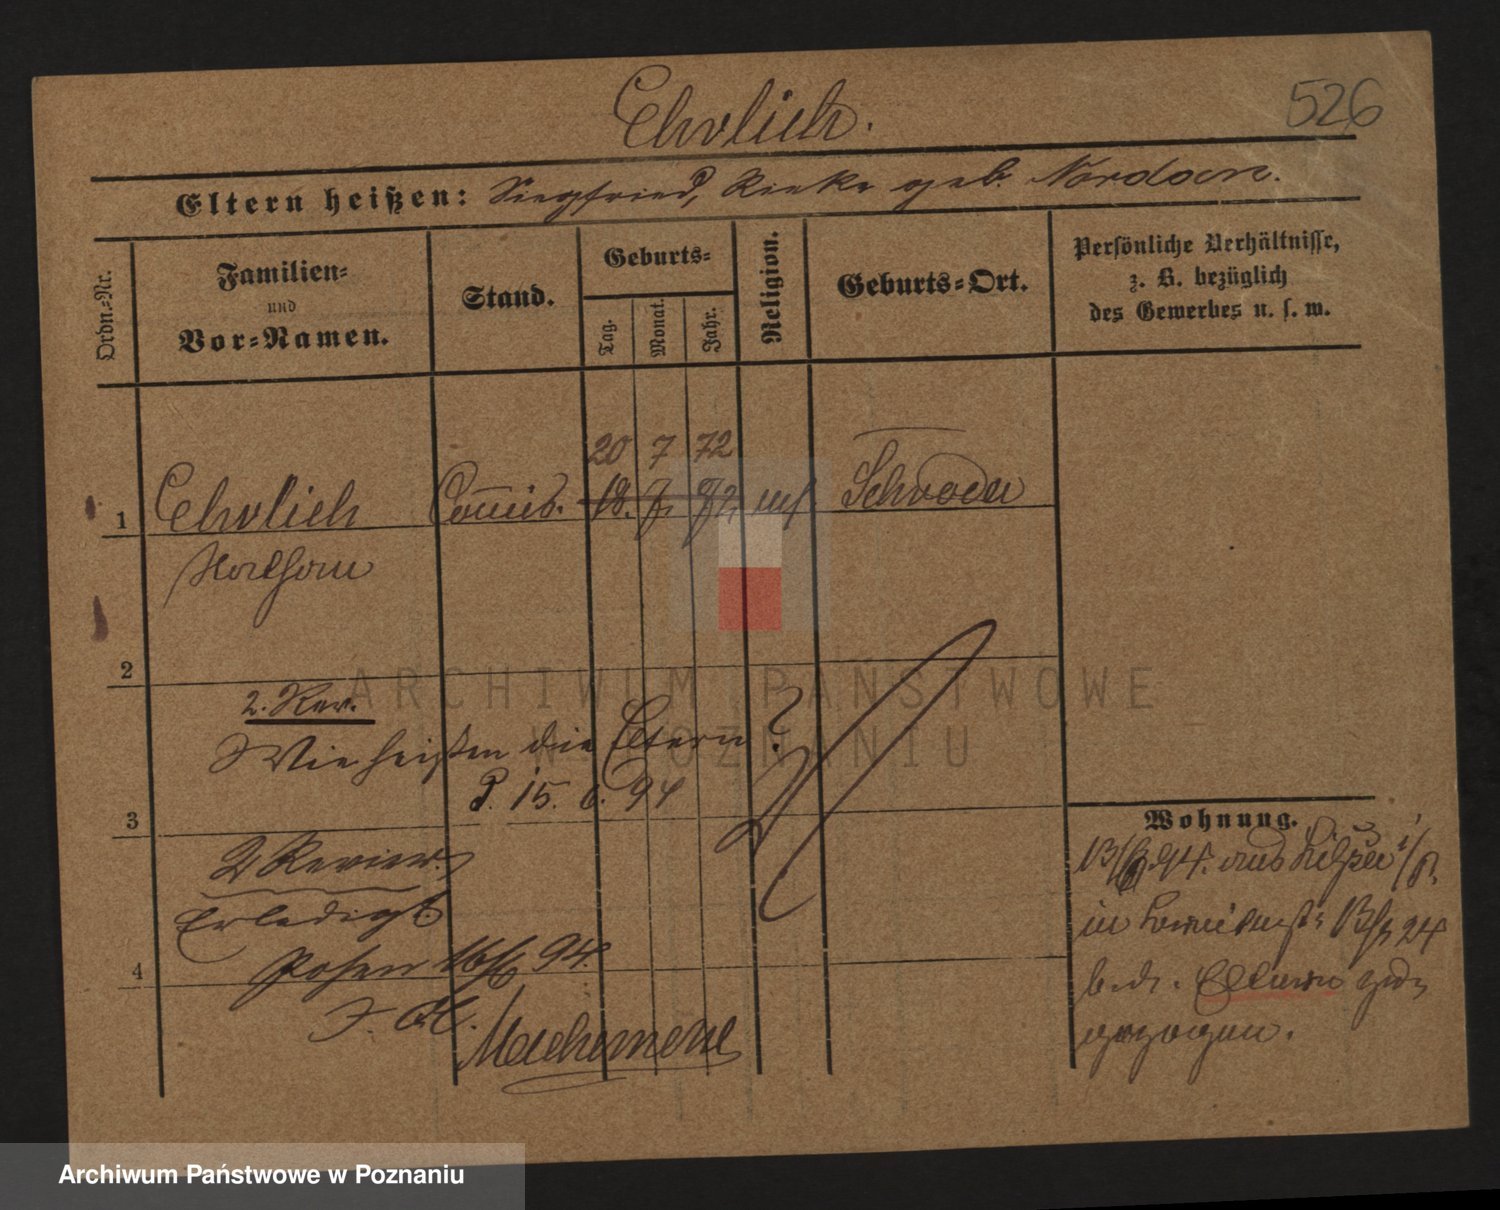 526
Ehrlich.
Eltern heißen: Siegfried, Rieke geb. Nordon.
Ordn.-Nr.
Familien-
und
Vor-Namen.
Stand.
Geburts-
Tag.
Monat.
Jahr.
Religion.
Geburts-Ort.
Persönliche Verhältnisse,
z. B. bezüglich
des Gewerbes u. s. w.
20 7 72
1 Ehrlich Commis. 18. 7. 72 Schroda
Nathan
2
2. Rev.
Wie heißen die Eltern?
P. 15. 6. 94
3
2 Revier
Erledigt
Posen 16/6 94.
4
Wohnung.
13/6 94. aus
in 13/6 24
b. d. Eltern
gezogen.
ARCHIWUM PAŃSTWOWE
W POZNANIU
Archiwum Państwowe w Poznaniu